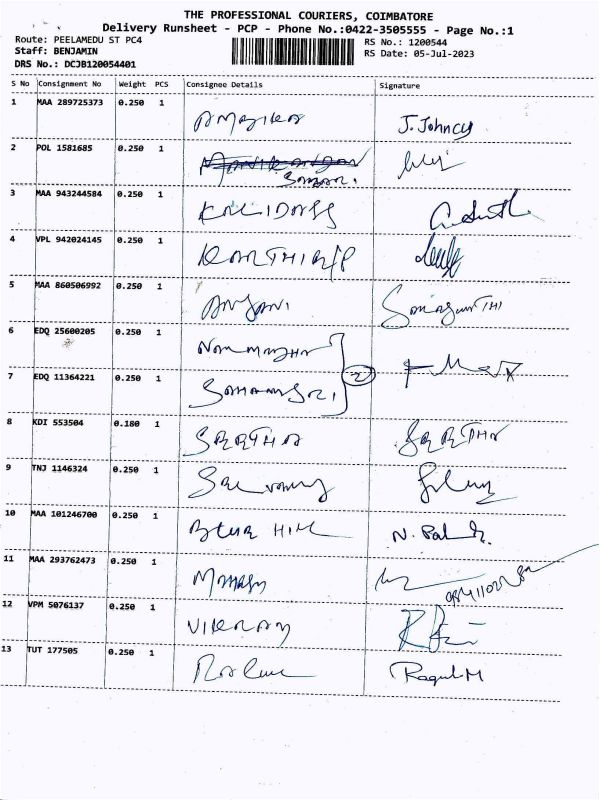 THE PROFESSIONAL COURIERS, COIMBATORE
Delivery Runsheet - PCP - Phone No.:0422-3505555 - Page No.:1
Route: PEELAMEDU ST PC4
RS No.: 1200544
Staff: BENJAMIN
RS Date: 05-Jul-2023
DRS No.: DCJB120054401
S No Consignment No Weight PCS Consignee Details Signature
1 MAA 289725373 0.250 1 AMBIKA J. Johncy
2 POL 1581685 0.250 1
3 MAA 943244584 0.250 1 KALIDASS
4 VPL 942024145 0.250 1 KARTHIK
5 MAA 860506992 0.250 1 ANJANI
6 EDQ 25600205 0.250 1
7 EDQ 11364221 0.250 1 2
8 KDI 553504 0.180 1
9 TNJ 1146324 0.250 1
10 MAA 101246700 0.250 1 BLUE HILL
11 MAA 293762473 0.250 1
12 VPM 5076137 0.250 1 VIKRAM
13 TUT 177505 0.250 1 Ragul M